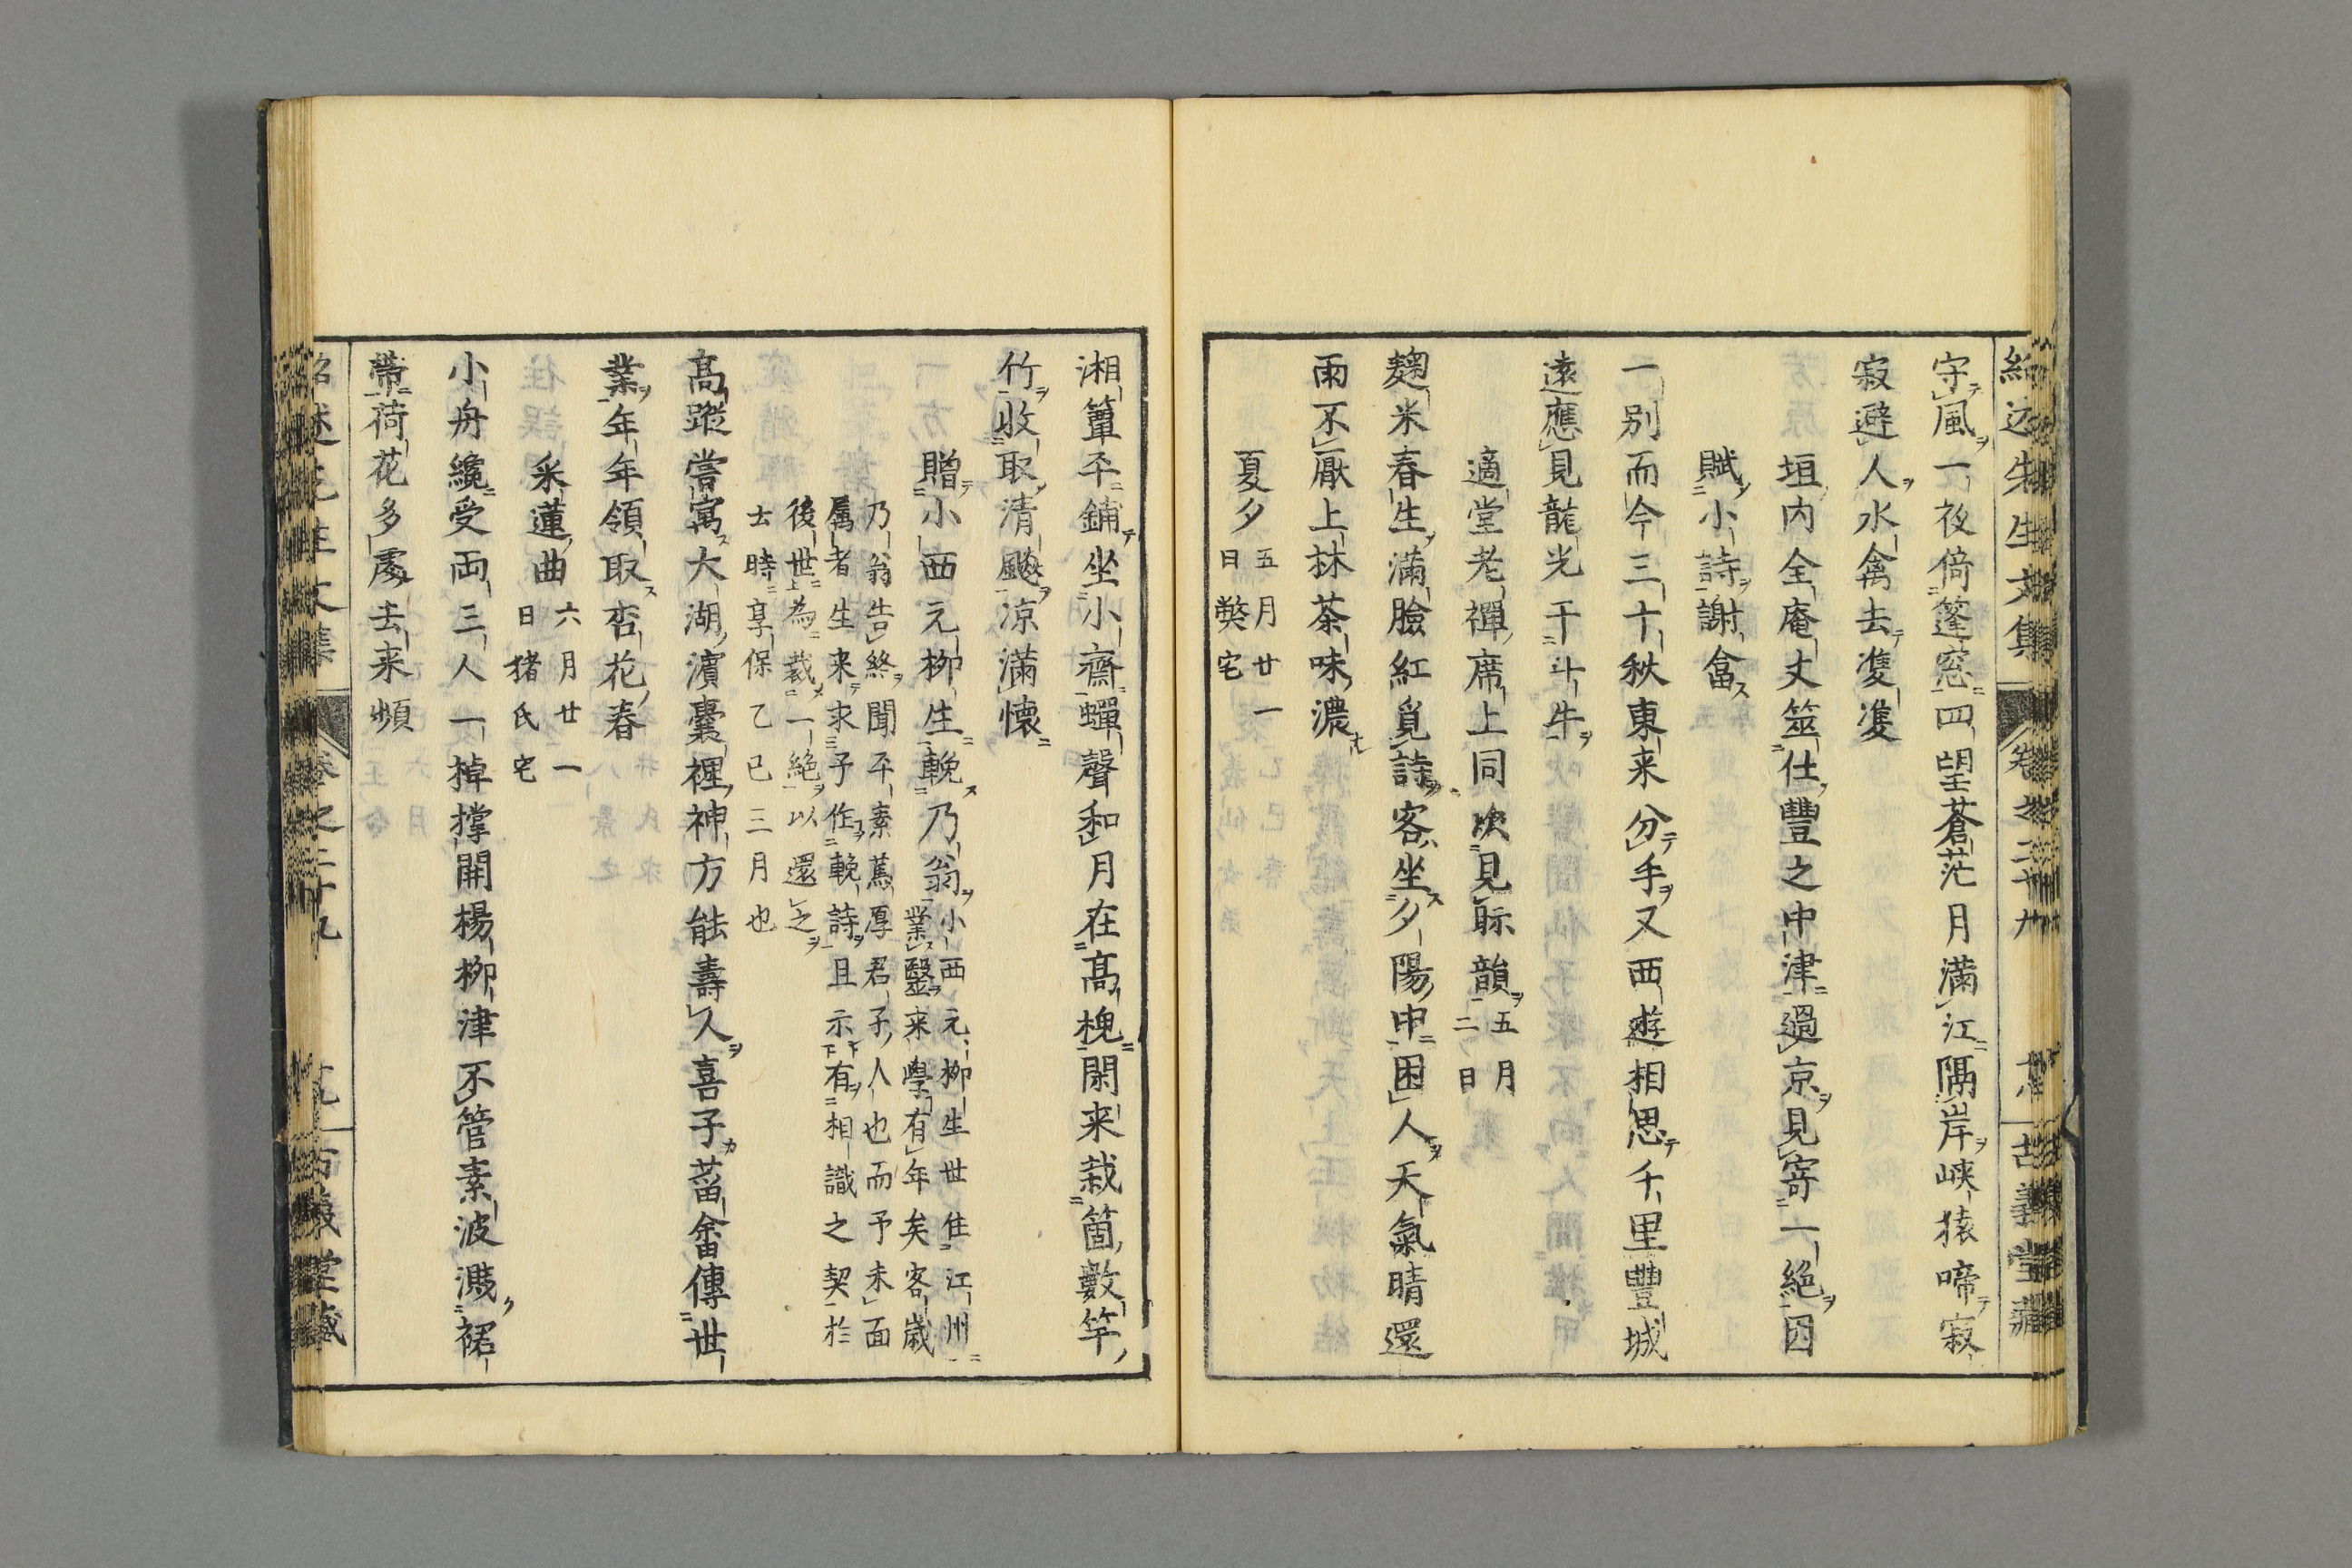 守風一夜倚篷窓四望蒼茫月滿江隅岸峽猿啼寂
寂避人水禽去雙雙
垣内全庵丈筮仕豐之中津過京見寄一絶因
賦小詩謝畣
一别而今三十秋東来分手又西遊相思千里豐城
遠應見龍光干斗牛
適堂老禪席上同次見眎韻五月二日
麹米春生滿臉紅覓詩客坐夕陽中困人天氣晴還
雨不厭上抹茶味濃
夏夕五月廿一日弊宅
湘簟平鋪坐小齋蟬聲和月在高槐閑来栽箇數竿
竹收取清飈凉滿懷
贈小西元柳生輓乃翁小西元柳生世住江州業醫来學有年矣客歳
乃翁告終聞平素蔫厚君子人也而予未面
属者生来求予作輓詩且示有相識之契於
後世為裁一絶以還之
士時享保乙巳三月也
高蹤嘗寓大湖濱囊裡神方能壽人喜子菑畬傳世
業年年領取杏花春
采蓮曲六月廿一日猪氏宅
小舟纔受両三人一棹撑開楊柳津不管素波濺裙
帶荷花多處去来頻